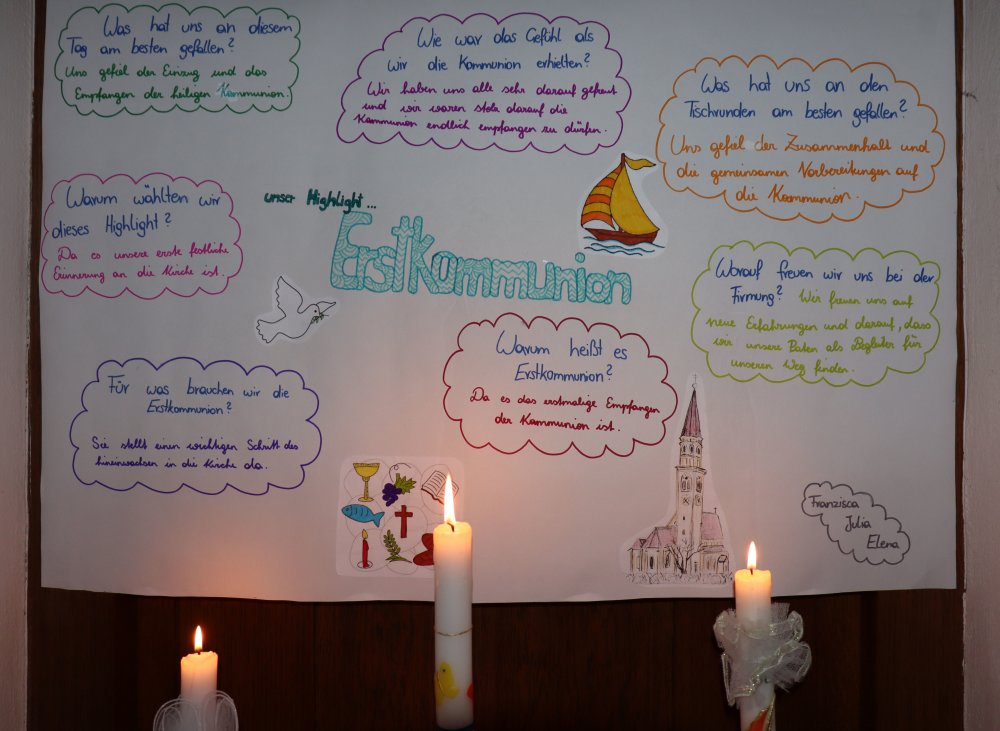 Was hat uns an diesem
Tag am besten gefallen?
Uns gefiel der Einzug und das
Empfangen der heiligen Kommunion.
Wie war das Gefühl als
wir die Kommunion erhielten?
Wir haben uns alle sehr darauf gefreut
und wir waren stolz darauf die
Kommunion endlich empfangen zu dürfen.
Was hat uns an den
Tischrunden am besten gefallen?
Uns gefiel der Zusammenhalt und
die gemeinsamen Vorbereitungen auf
die Kommunion.
Warum wählten wir
dieses Highlight?
Da es unsere erste festliche
Erinnerung an die Kirche ist.
unser Highlight...
Erstkommunion
Worauf freuen wir uns bei der
Firmung? Wir freuen uns auf
neue Erfahrungen und darauf, dass
wir unsere Paten als Begleiter für
unseren Weg finden.
Für was brauchen wir die
Erstkommunion?
Sie stellt einen wichtigen Schritt des
hineinwachsen in die Kirche da.
Warum heißt es
Erstkommunion?
Da es das erstmalige Empfangen
der Kommunion ist.
Franzisca
Julia
Elena